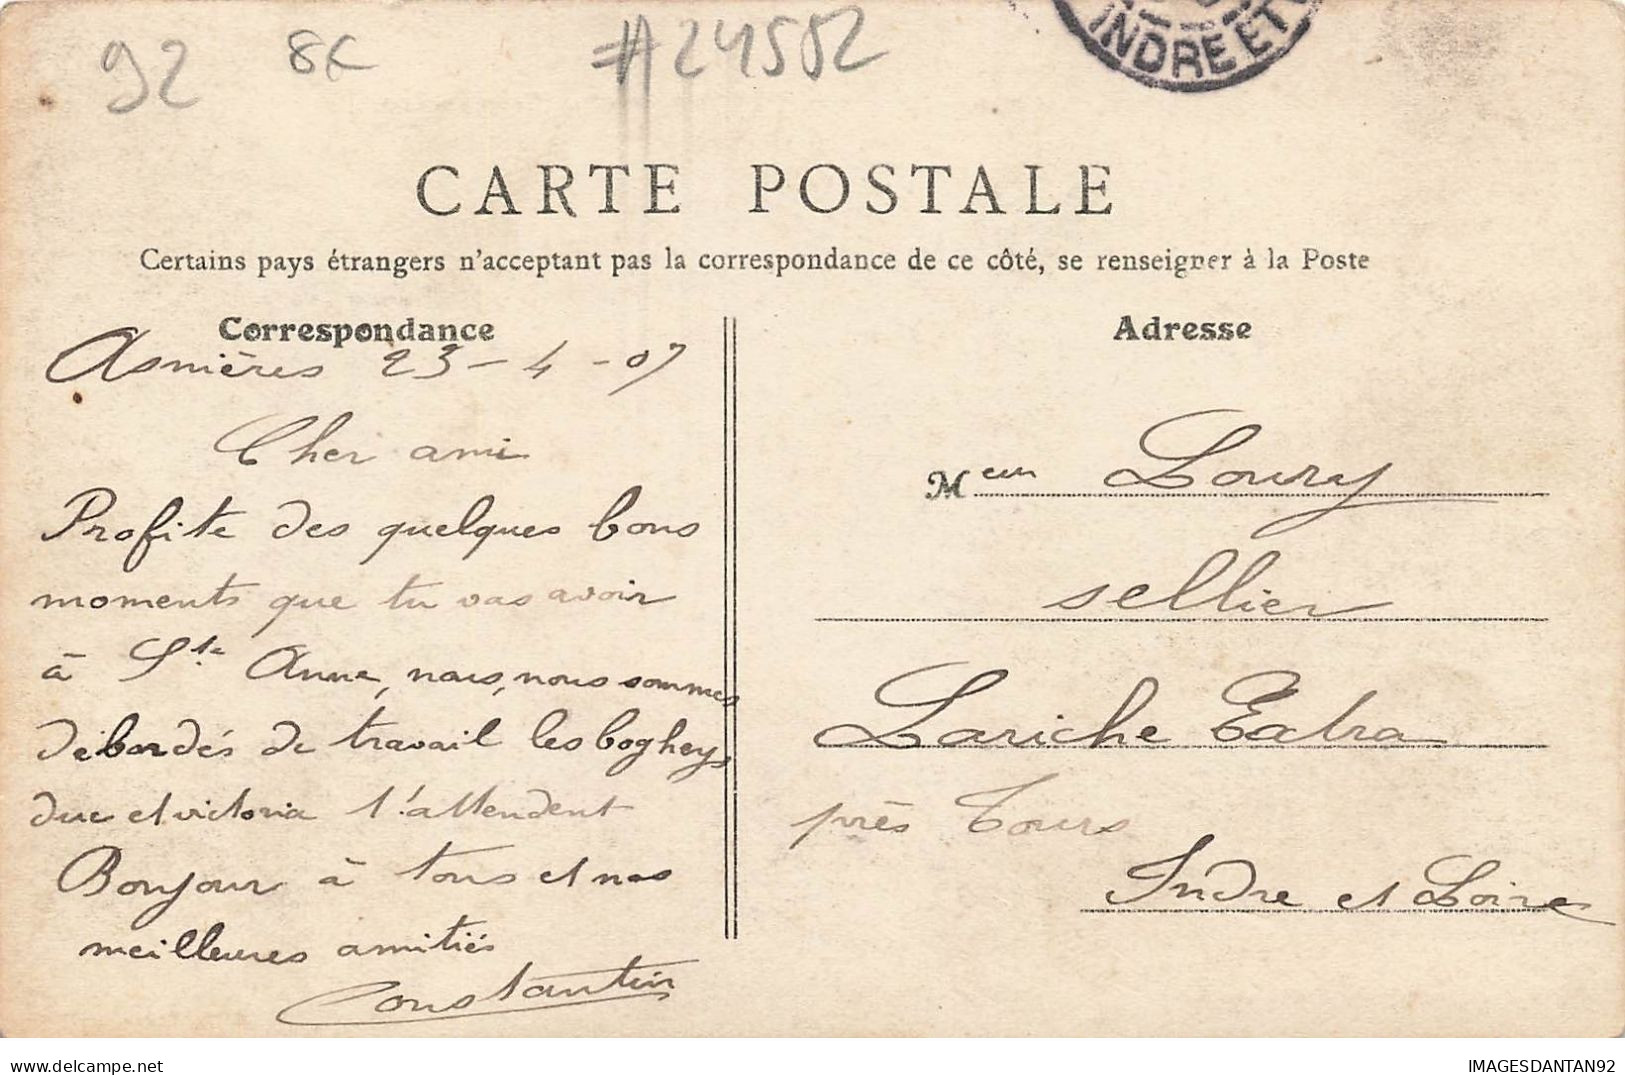 92 8€ #24582
INDRE ET
CARTE POSTALE
Certains pays étrangers n'acceptant pas la correspondance de ce côté, se renseigner à la Poste
Correspondance
Asnières 23-4-07
Cher ami
Profite des quelques bons
moments que tu vas avoir
à Ste Anne, nous, nous sommes
débordés de travail les bogheys
duc et victoria t'attendent
Bonjour à tous et nos
meilleures amitiés
Constantin
Adresse
Meur Loury
sellier
Lariche Extra
près Tours
Indre et Loire
IMAGESDANTAN92